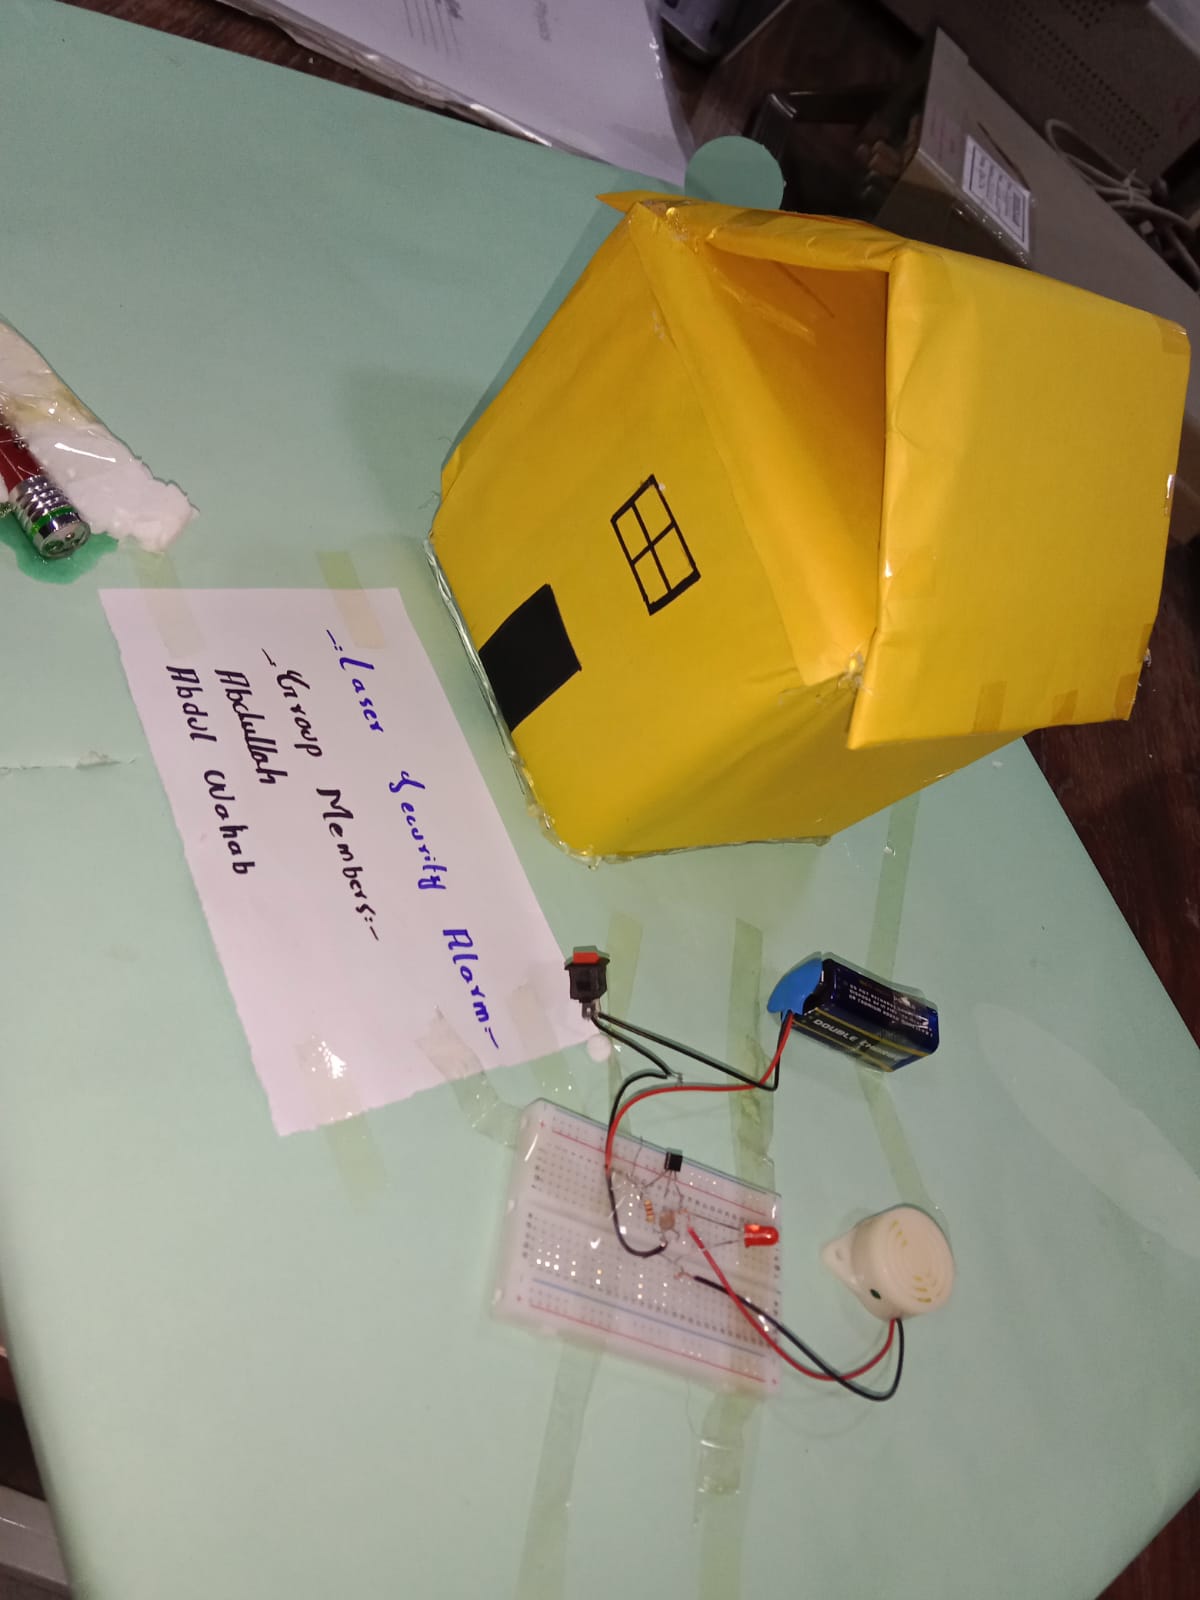 -:Laser Security Alarm:-
-:Group Members:-
Abdullah
Abdul Wahab
DOUBLE ENERGY